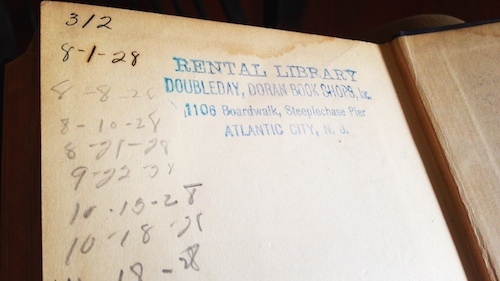 312
8-1-28
RENTAL LIBRARY
DOUBLEDAY, DORAN BOOK SHOPS, Inc.
1106 Boardwalk, Steeplechase Pier
ATLANTIC CITY, N. J.
8-10-28
8-21-28
9-22-28
10-13-28
10-18-28